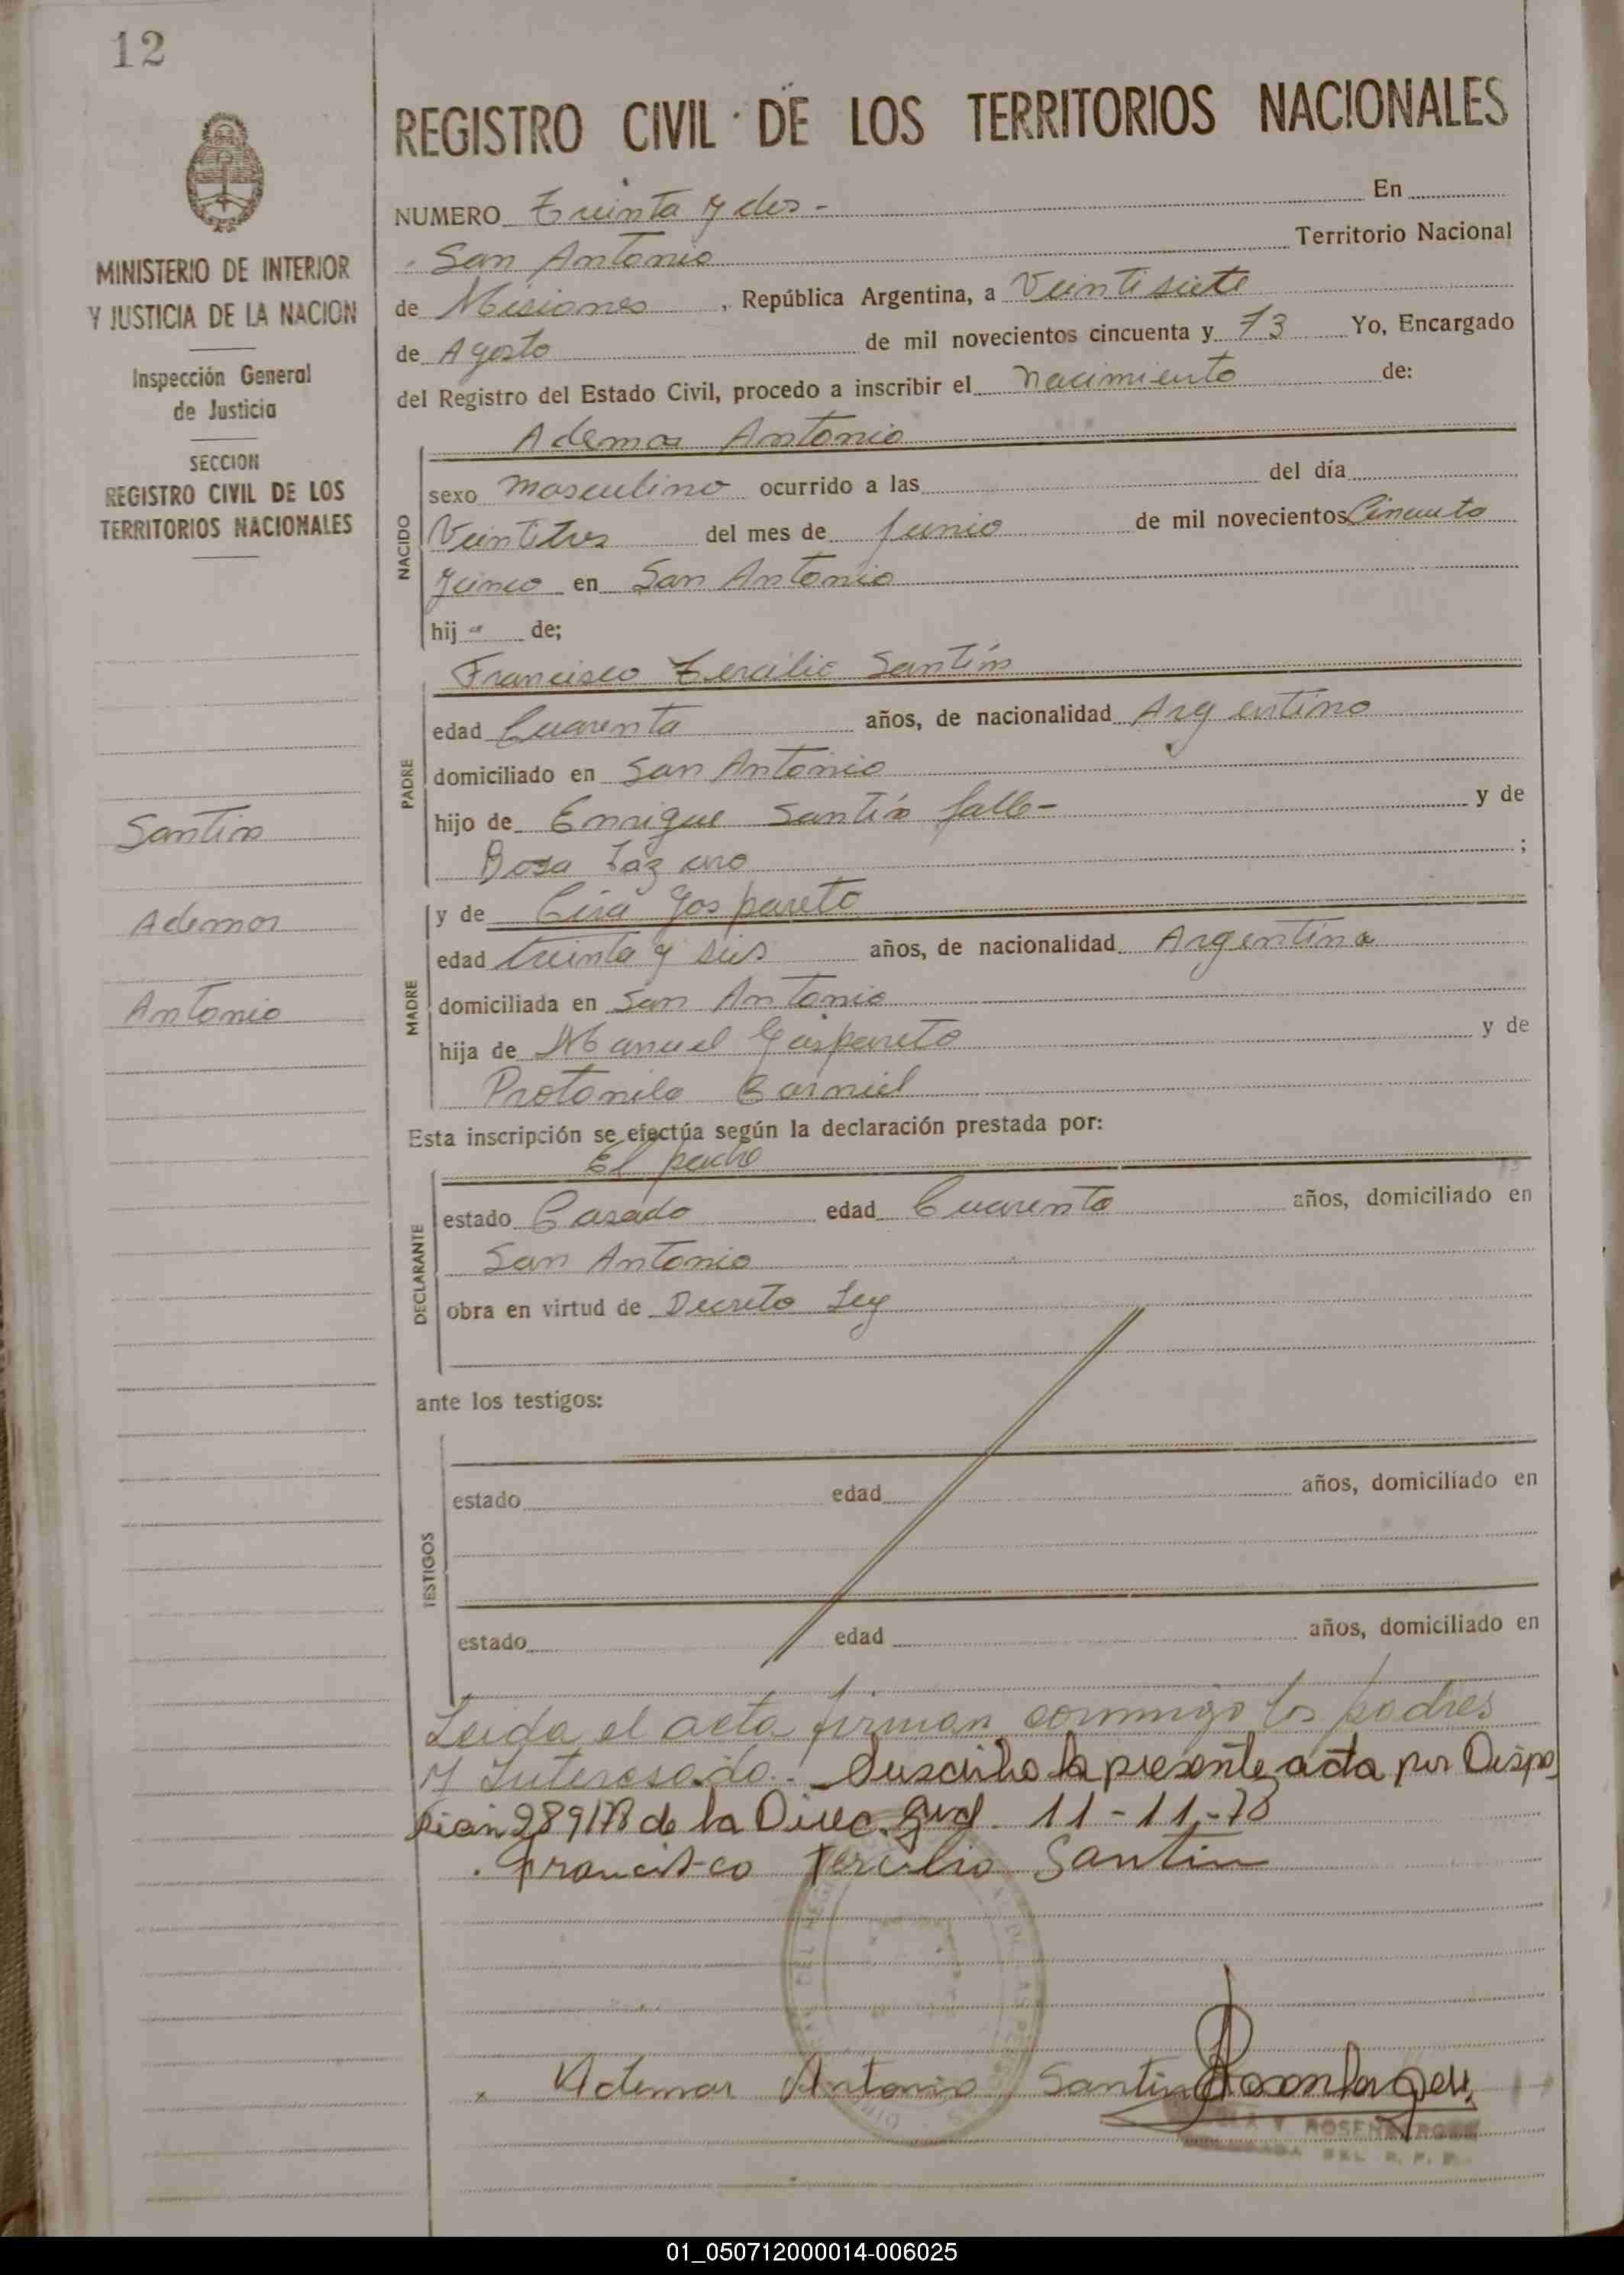 12
REGISTRO CIVIL DE LOS TERRITORIOS NACIONALES
MINISTERIO DE INTERIOR
Y JUSTICIA DE LA NACION
Inspección General
de Justicia
SECCION
REGISTRO CIVIL DE LOS
TERRITORIOS NACIONALES
Santin
Ademar
Antonio
NUMERO Treinta y dos - En
San Antonio Territorio Nacional
de Misiones, República Argentina, a Veintisiete
de Agosto de mil novecientos cincuenta y 73 Yo, Encargado
del Registro del Estado Civil, procedo a inscribir el Nacimiento de:
NACIDO
Ademar Antonio
sexo masculino ocurrido a las del día
Veintitres del mes de Junio de mil novecientos Cincuenta
y cinco en San Antonio
hij o de;
PADRE
Francisco Tercilio Santín
edad Cuarenta años, de nacionalidad Argentino
domiciliado en San Antonio
hijo de Enrique Santín falle- y de
Rosa ;
MADRE
y de Gaspareto
edad treinta y seis años, de nacionalidad Argentina
domiciliada en San Antonio
hija de Manuel Gaspareto y de
Protonila Carniel
Esta inscripción se efectúa según la declaración prestada por:
DECLARANTE
El padre
estado Casado edad Cuarenta años, domiciliado en
San Antonio
obra en virtud de Decreto Ley
ante los testigos:
TESTIGOS
estado edad años, domiciliado en
estado edad años, domiciliado en
Leida el acta firman conmigo los padres
y Interesado. Suscribo la presente acta por Dispo
sicion 289/78 de la Direc. Gral. 11-11-78
Francisco Tercilio Santin
Ademar Antonio Santin
ROSENBERGER
DEL R. P. P.
01_050712000014-006025